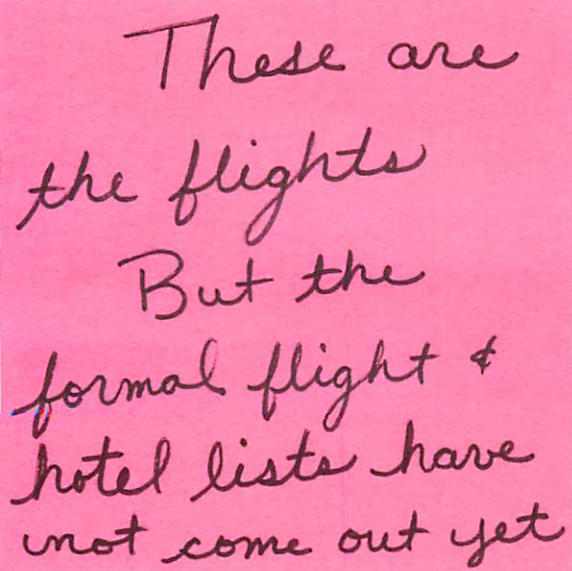 These are
the flights
But the
formal flight &
hotel lists have
not come out yet